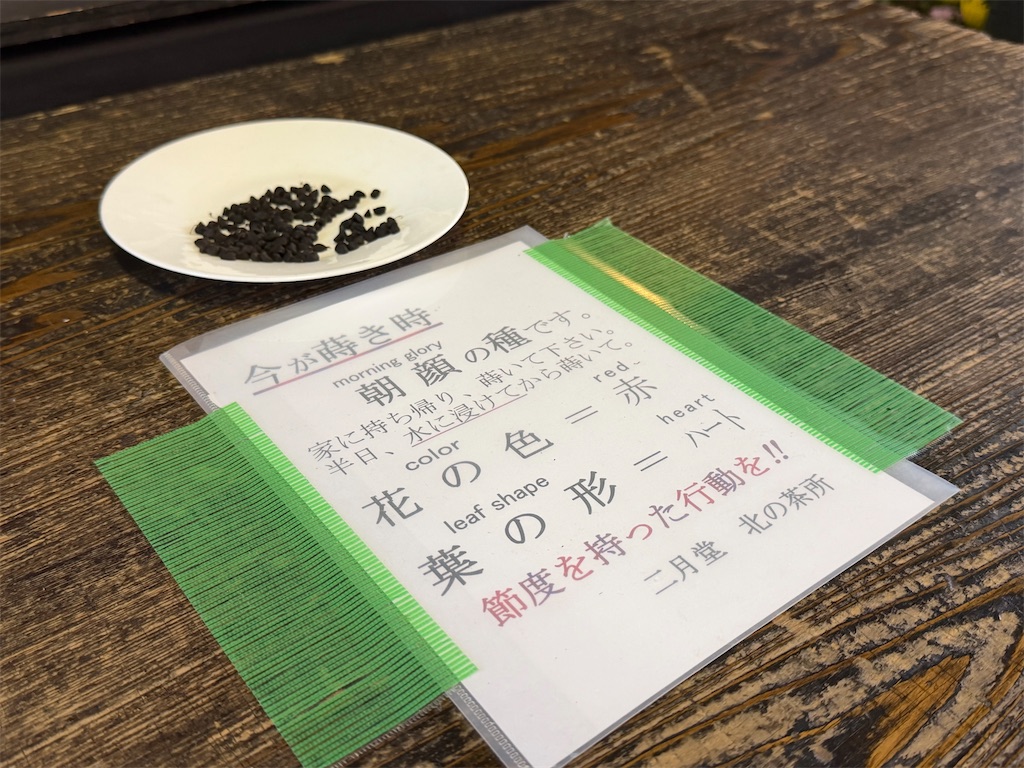 今が蒔き時
morning glory
朝顔の種です。
家に持ち帰り、蒔いて下さい。
半日、水に浸けてから蒔いて。
color red
花の色=赤
leaf shape heart
葉の形=ハート
節度を持った行動を!!
二月堂 北の茶所